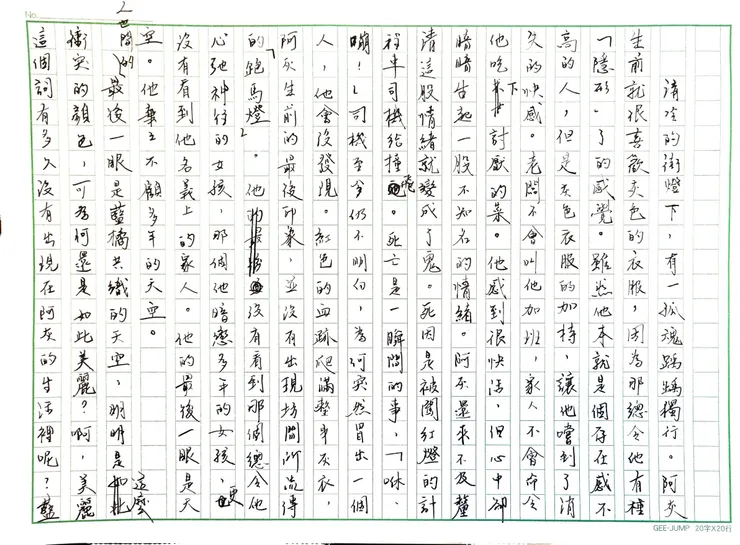 No.
清冷的街燈下，有一孤魂踽踽獨行。阿灰
生前就很喜歡灰色的衣服，因為那總令他有種
「隱形」了的感覺。雖然他本就是個存在感不
高的人，但是灰色衣服的加持，讓他嚐到了消
失的快感。老闆不會叫他加班，家人不會命令
他吃下討厭的菜。他感到很快活，但心中卻
暗暗生起一股不知名的情緒。阿灰還來不及釐
清這股情緒就變成了鬼。死因是被闖紅燈的計
程車司機給撞飛。死亡是一瞬間的事，「咻、
嘣！」司機至今仍不明白，為何突然冒出一個
人，他會沒發現。紅色的血跡爬滿整件灰衣，
阿灰生前的最後印象，並沒有出現坊間所流傳
的「跑馬燈」。他沒有看到那個總令他
心弛神往的女孩，那個他暗戀多年的女孩，更
沒有看到他名義上的家人。他的最後一眼是天
空。他棄之不顧多年的天空。
世間的最後一眼是藍橘共織的天空，明明是這麼
衝突的顏色，可為何還是如此美麗？啊，美麗
這個詞有多久沒有出現在阿灰的生活裡呢？藍
GEE-JUMP 20字X20行